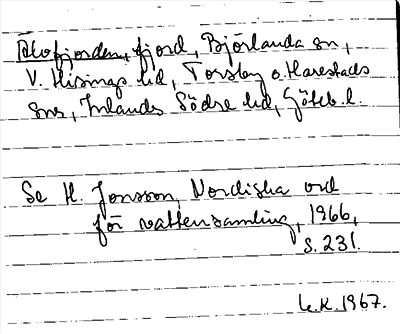 fjord, Björlanda sn,
V. Hisings hd, Torsby o. Harestads
snr, Inlands Södre hd, Göteb. l.
Se H. Jonsson, Nordiska ord
för vattensamling, 1966,
s. 231.
1967.